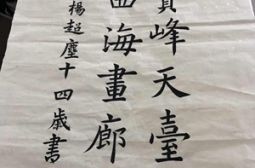 峰天臺
海畫廊
楊超塵十四歲書